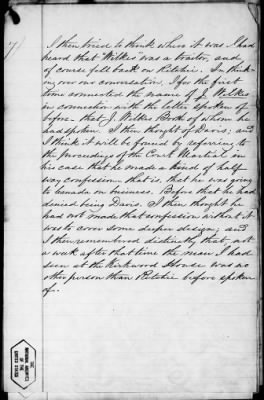 7/
I then tried to think where it was I had
heard that Wilkes was a traitor, and
of course fell back on Ritchie. In think-
ing over our conversation, I for the first
time connected the name of J. Wilkes
in connection with the letter spoken of
before - that J. Wilkes Booth of whom he
had spoken. I then thought of Davis; and
I think it will be found by referring to
the proceedings of the Court Martial in
his case that he made a kind of half-
way confession; that is, that he was going
to Canada on business. Before that he had
denied being Davis. I then thought he
had not made that confession without it
was to cover some deeper design; and
I then remembered distinctly that, not
a week after that time the man I had
seen at the Kirkwood House was no
other person than Ritchie before spoken
of.
THE
NATIONAL ARCHIVES
OF THE
UNITED STATES